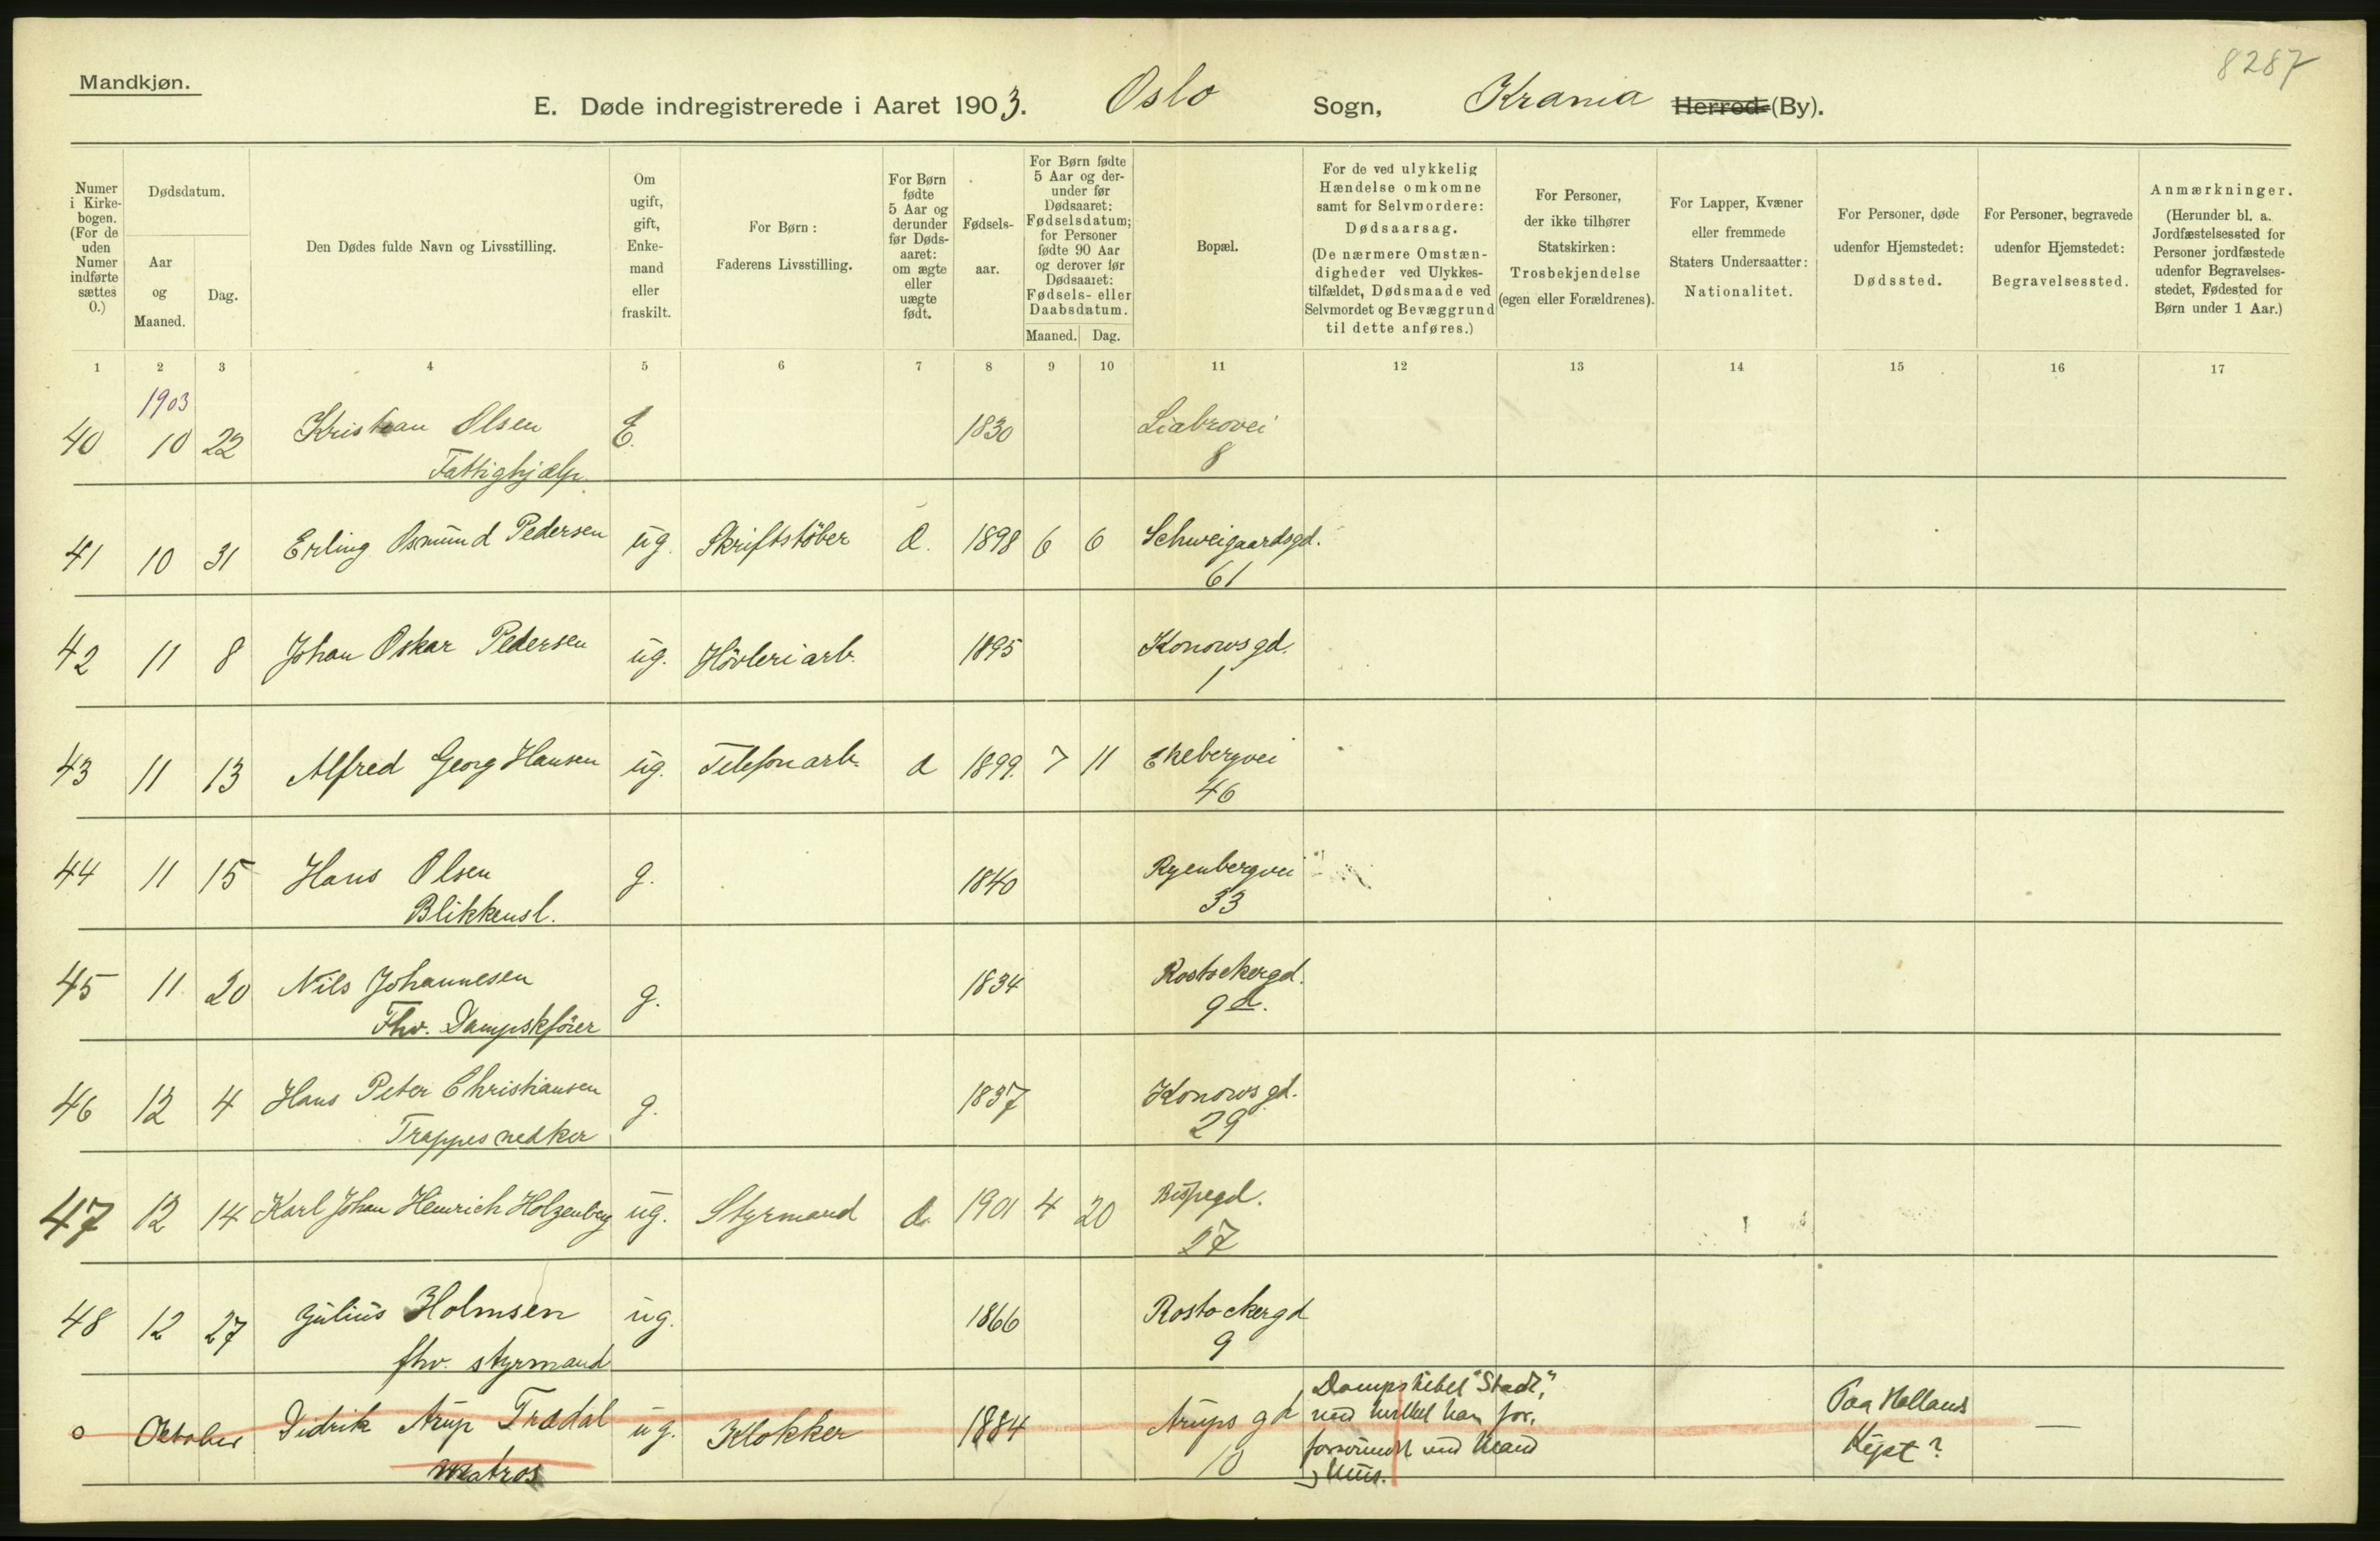 8287
Mandkjøn.
E. Døde indregistrerede i Aaret 1903. Oslo Sogn, Krania Herred (By).
Numer i Kirke-bogen. (For de uden Numer indførte sættes 0.)
Dødsdatum.
Aar og Maaned.
Dag.
Den Dødes fulde Navn og Livsstilling.
Om ugift, gift, Enke-mand eller fraskilt.
For Børn: Faderens Livsstilling.
For Børn fødte 5 Aar og derunder før Døds-aaret: om ægte eller uægte født.
Fødsels-aar.
For Børn fødte 5 Aar og der-under før Dødsaaret: Fødselsdatum; for Personer fødte 90 Aar og derover før Dødsaaret: Fødsels- eller Daabsdatum.
Maaned. Dag.
Bopæl.
For de ved ulykkelig Hændelse omkomne samt for Selvmordere: Dødsaarsag. (De nærmere Omstæn-digheder ved Ulykkes-tilfældet, Dødsmaade ved Selvmordet og Bevæggrund til dette anføres.)
For Personer, der ikke tilhører Statskirken: Trosbekjendelse (egen eller Forældrenes).
For Lapper, Kvæner eller fremmede Staters Undersaatter: Nationalitet.
For Personer, døde udenfor Hjemstedet: Dødssted.
For Personer, begravede udenfor Hjemstedet: Begravelsessted.
Anmærkninger. (Herunder bl. a. Jordfæstelsessted for Personer jordfæstede udenfor Begravelses-stedet, Fødested for Børn under 1 Aar.)
1 2 3 4 5 6 7 8 9 10 11 12 13 14 15 16 17
1903
40 10 22 Kristian Olsen E. 1830 Liabrovei
Fattighjælp. 8
41 10 31 Erling Osmund Pedersen ug. Skriftstöber 1898 6 6 Schweigaardsgd.
61
42 11 8 Johan Oskar Pedersen ug. Hövleriarb. 1895 Konowsgd.
1
43 11 13 Alfred Georg Hansen ug. Telefonarb. 1899. 7 11 Ekebergvei
46
44 11 15 Hans Olsen g. 1840 Ryenbergvei
Blikkensl. 33
45 11 20 Nils Johannesen g. 1834 Rostockergd.
Fhv. Dampskförer 9
46 12 4 Hans Peter Christiansen g. 1837 Konowsgd.
Trappesnedker 29
47 12 14 Karl Johan Henrich Holzenberg ug. Styrmand 1901 4 20 Bispegd.
27
48 12 27 Julius Holmsen ug. 1866 Rostockergd
fhv. styrmand 9
0 Oktober Didrik Arup Trædal ug. Klokker 1884 Arups gd Dampskibet "Stadt", med hvilket han for, Paa Hollands —
Matros 10 forsvundet med Mand Kyst?
&amp; Mus.